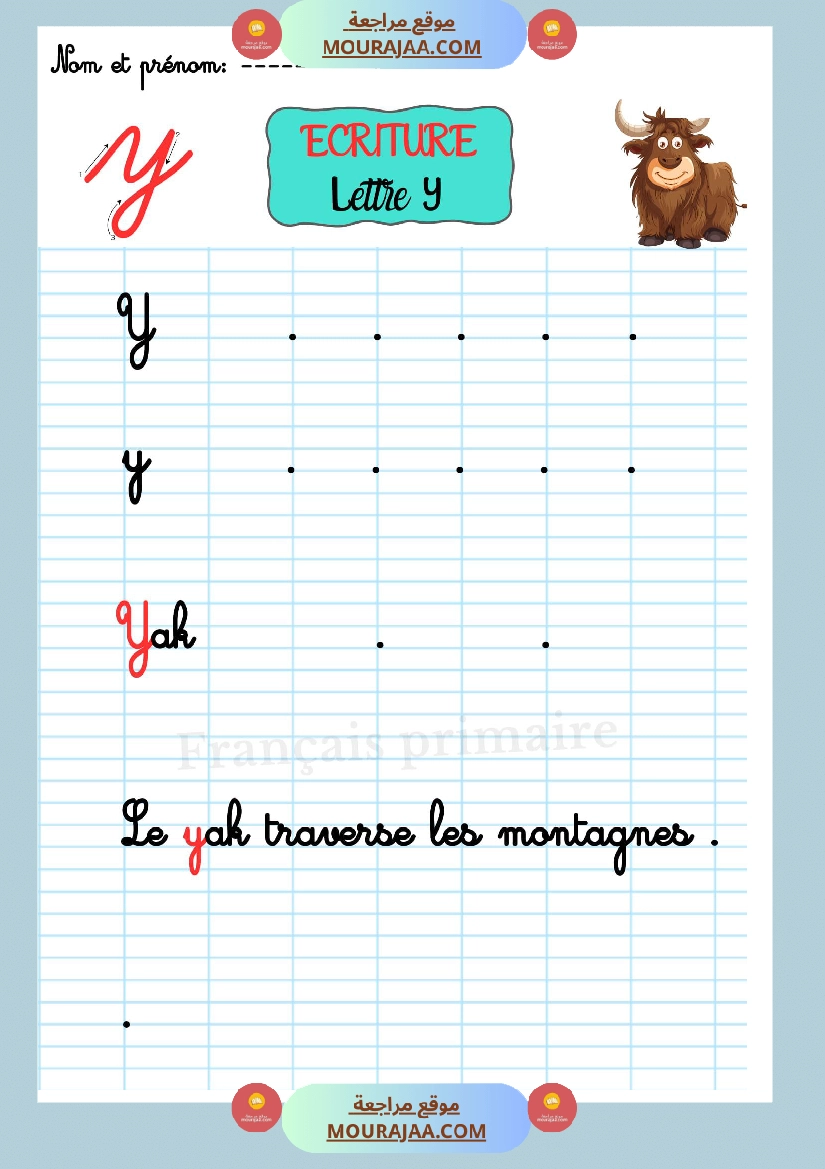 موقع مراجعة
MOURAJAA.COM
Nom et prénom: -----
1 2 3
ECRITURE
Lettre Y
Y . . . . .
y . . . . .
Yak . .
Français primaire
Le yak traverse les montagnes .
.
موقع مراجعة
MOURAJAA.COM